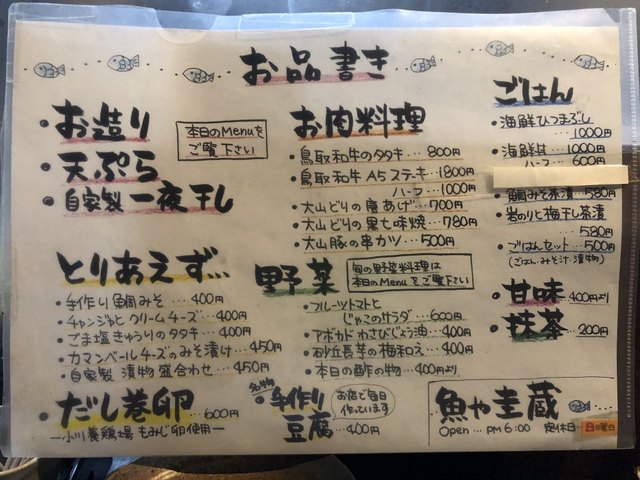 お品書き
・お造り
・天ぷら
・自家製 一夜干し
本日のMenuを
ご覧下さい
とりあえず...
・手作り鯛みそ…400円
・チャンジャとクリームチーズ…400円
・ごま塩きゅうりのタタキ…400円
・カマンベールチーズのみそ漬け…450円
・自家製 漬物盛合わせ…450円
・だし巻卵…600円
ー小川養鶏場 もみじ卵使用ー
お肉料理
・鳥取和牛のタタキ…800円
・鳥取和牛 A5ステーキ…1800円
ハーフ…1000円
・大山どりの唐あげ…700円
・大山どりの黒七味焼…780円
・大山豚の串カツ…500円
野菜
旬の野菜料理は
本日のMenuをご覧下さい
・フルーツトマトと
じゃこのサラダ…600円
・アボカドわさびじょう油…400円
・砂丘長芋の梅和え…400円
・本日の酢の物…400円より
名物
・手作り
豆腐…400円
お店で毎日
作っています
ごはん
・海鮮ひつまぶし
1000円
・海鮮丼…1000円
ハーフ…600円
・鯛みそ茶漬…580円
・岩のりと梅干し茶漬
…580円
・ごはんセット…500円
(ごはん・みそ汁・漬物)
・甘味 400円より
・抹茶…200円
魚や圭蔵
Open…PM6:00 定休日…日曜日